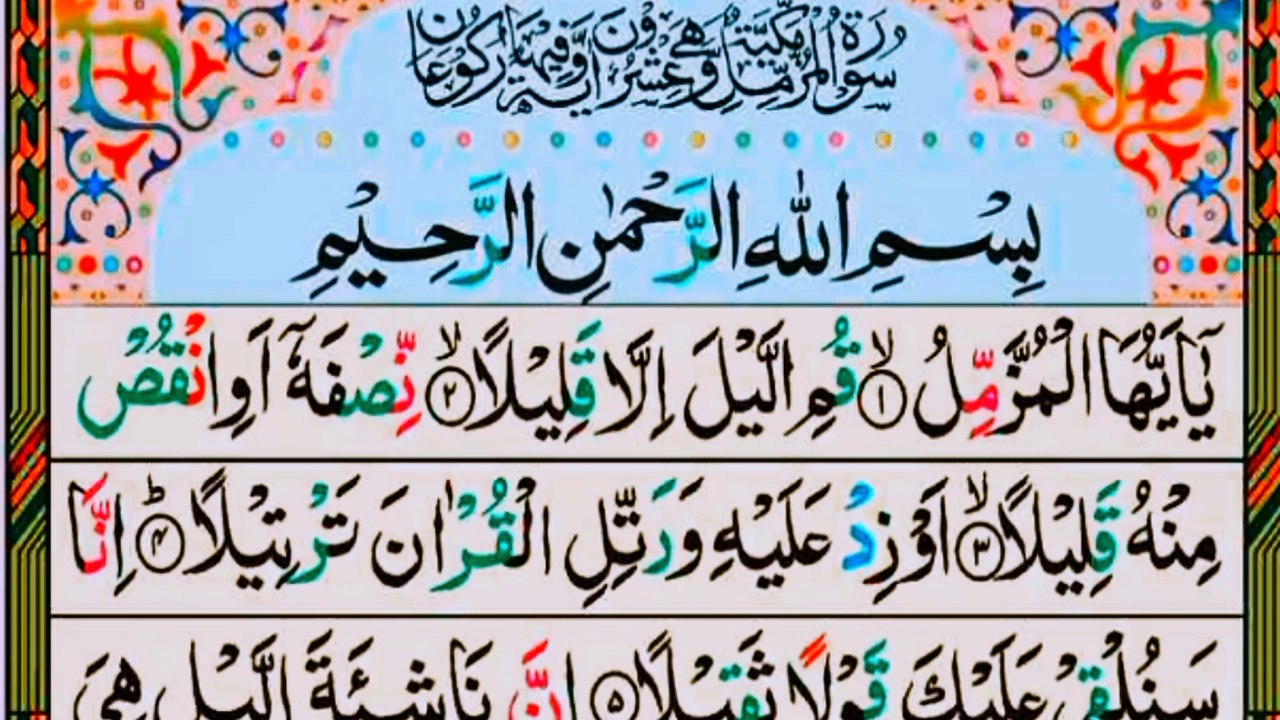 سُوْرَةُ الْمُزَّمِّلِ مَكِّيَّةٌ وَّهِيَ عِشْرُوْنَ اٰيَةً وَّفِيْهَا رُكُوْعَانِ
بِسْمِ اللّٰهِ الرَّحْمٰنِ الرَّحِيْمِ
يٰۤاَيُّهَا الْمُزَّمِّلُ ۙ﴿۱﴾ قُمِ الَّيْلَ اِلَّا قَلِيْلًا ۙ﴿۲﴾ نِّصْفَهٗۤ اَوِ انْقُصْ
مِنْهُ قَلِيْلًا ۙ﴿۳﴾ اَوْ زِدْ عَلَيْهِ وَرَتِّلِ الْقُرْاٰنَ تَرْتِيْلًا ؕ﴿۴﴾ اِنَّا
سَنُلْقِيْ عَلَيْكَ قَوْلًا ثَقِيْلًا ﴿۵﴾ اِنَّ نَاشِئَةَ الَّيْلِ هِيَ